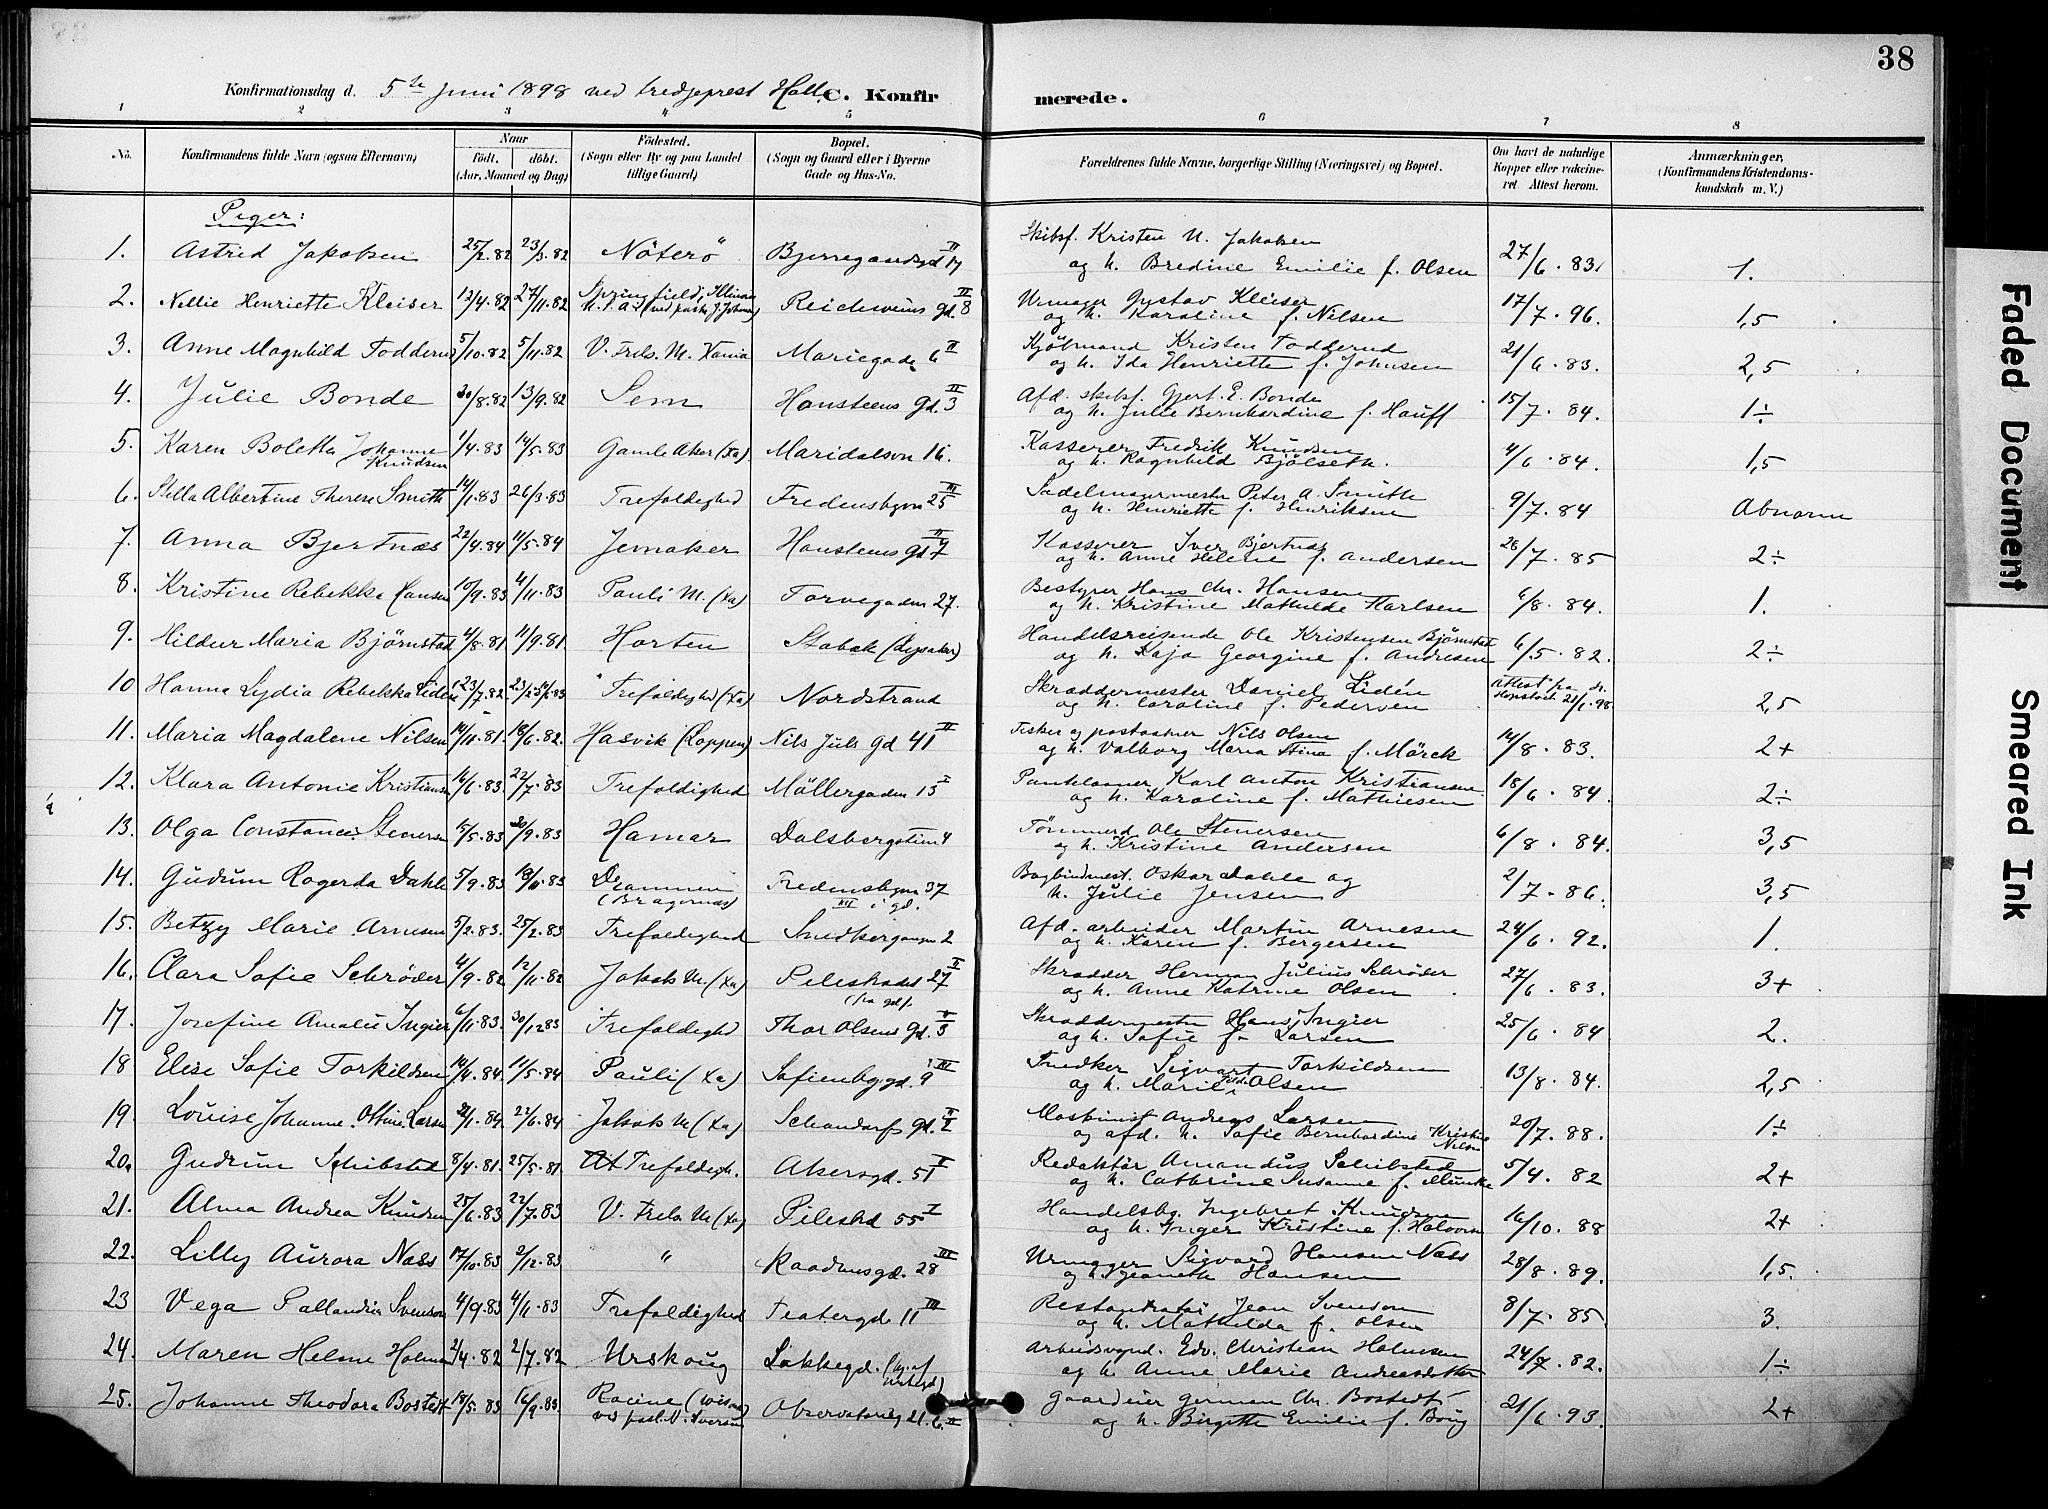 38
Konfirmationsdag d. 5te juni 1898 ved tredjeprest Hall. C. Konfirmerede.
1 2 3 4 5 6 7 8
No. Konfirmandens fulde Navn (ogsaa Efternavn) Naar født, døbt. (Aar, Maaned og Dag) Fødested. (Sogn eller By og paa Landet tillige Gaard) Bopæl. (Sogn og Gaard eller i Byerne Gade og Hus-No. Forældrenes fulde Navne, borgerlige Stilling (Næringsvei) og Bopæl. Om havt de naturlige Kopper eller vakcineret. Attest herom. Anmærkninger, (Konfirmandens Kristendomskundskab m. V.)
Piger:
1. Astrid Jakobsen 25/2.82 23/3.82 Nøterø Bjerregaardsgd 17 II Skibsf. Kristen N. Jakobsen og h. Bredine Emilie f. Olsen 27/6.83 1.
2. Nellie Henriette Kleiser 12/4.82 27/11.82 Springfield, Illinois Reichweins gd. 8 II Urmager Gustav Kleiser og h. Karoline f. Nilsen 17/7.96. 1,5
3. Anne Magnhild Toddernd 5/10.82 5/11.82 V. Frels. M. Xania Mariegade 6 II Kjøbmand Kristen Toddernd og h. Ida Henriette f. Johnsen 21/6.83. 2,5
4. Julie Bonde 30/8.82 13/9.82 Sem Hansteens gd. 3 II Afd. skibsf. Gjert. E. Bonde og h. Julie Bernhardine f. Hauff 15/7.84. 1÷
5. Karen Boletta Johanne Knudsen 1/4.83 14/5.83 Gamle Aker (Xa). Maridalsvn 16. Kasserer Fredrik Knudsen og h. Ragnhild Bjølseth. 4/6.84. 1,5
6. Stella Albertine Therese Smith 14/1.83 26/3.83 Trefoldighed Fredensbgvn 25 III Sadelmagermester Peter A. Smith og h. Henriette f. Henriksen 9/7.84 Abnorm
7. Anna Bjertnæs 22/4.84 11/5.84 Jevnaker Hansteens gd 7 II Kasserer Iver Bjertnæs og h. Anne Helene f. Andersen 28/7.85 2÷
8. Kristine Rebekka Hansen 10/9.83 4/11.83 Pauli M. (Xa) Torvegaden 27. Bestyrer Hans Chr. Hansen og h. Kristine Mathilde Karlsen 6/8.84. 1.
9. Hildur Maria Bjørnstad 4/8.81 11/9.81. Horten Stabæk (Lysaker) Handelsreisende Ole Kristensen Bjørnstad og h. Kaja Georgine f. Andresen 6/5.82. 2÷
10 Hanna Lydia Rebekka Lidén 23/7.82 Trefoldighed (Xa) Nordstrand Skræddermester Daniel Lidén og h. Caroline f. Pedersen Attest fra dr. Hopstock 21/1.98 2,5
11. Maria Magdalene Nilsen 14/11.81. 18/6.82. Hasvik (Loppen) Nils Juls gd 41 II Fisker og postaabner Nils Olsen og h. Valborg Maria Stina f. Mörck 14/8.83. 2+
12. Klara Antonie Kristiansen 16/6.83 22/7.83 Trefoldighed Møllergaden 15 I Pantelaaner Karl Anton Kristiansen og h. Karoline f. Mathiesen 18/6.84. 2÷
13. Olga Constance Stenersen 15/5.83 30/9.83 Hamar Dalsbergstien 4 Tømmerd Ole Stenersen og h. Kristine Andersen 6/8.84. 3,5
14. Gudrun Rogerda Dahle 5/9.83 18/11.83 Drammen (Bragernæs) Fredensbgvn 37 III i gd. Bogbindmest. Oskar Dahle og h. Julie Jensen 2/7.86. 3,5
15. Betzy Marie Arnesen 5/2.83. 25/2.83 Trefoldighed Snedkergangen 2 Afd. arbeider Martin Arnesen og h. Karen f. Bergersen 24/6.92. 1.
16. Clara Sofie Schrøder 4/9.82 12/11.82 Jakob M. (Xa) Pilestrædet 27 II (fra gd). Skrædder Herman Julius Schrøder og h. Anne Katrine Olsen 27/6.83. 3+
17. Josefine Amalie Ingier 6/11.83. 30/12.83 Trefoldighed Thor Olsens gd. 3 II Skræddermester Hans Ingier og h. Sofie f. Larsen 25/6.84 2.
18 Elise Sofie Torkildsen 14/4.84. 11/5.84 Pauli (Xa) Sofienbggd. 9 III Snedker Sigvart Torkildsen og h. Marie Olsen 13/8.84. 2,5
19. Louise Johanne Ottine Larsen 22/6.84 Jakob M (Xa) Schandorfs gd. II Maskinist Andreas Larsen og afd. h. Sofie Bernhardine Kristine Nilsen 20/7.88. 1÷
20. Gudrun Schibsted 8/4.81. 25/5.81 Trefoldigh. Akersgd. 51 II Redaktør Amandus Schibsted og h. Cathrine Susanne f. Munche 5/4.82 2+
21. Alma Andrea Knudsen 25/6.83 22/7.83 V. Frels. M (Xa) Pilestræd 55 I Handelsbg. Ingebret Knudsen og h. Inger Kristine f. Halvorsen 16/10.88 2+
22. Lilly Aurora Næss 17/10.83 2/12.83 " Raadhusgd. 28 III Urmager Sigvard Hansen Næss og h. Jeanette Hansen 28/8.89. 1,5.
23 Vega Pallandia Svenson 4/9.83 4/11.83 Trefoldighed Teatergd 11 III Restauratør Jean Svenson og h. Mathilda f. Olsen 8/7.85. 3.
24. Maren Helene Holmsen 2/4.82 2/7.82 Urskoug Løkkegd. Arbeidsmgnd. Edv. Christian Holmsen og h. Anne Marie Andreasdatter 24/7.82. 1÷
25. Johanne Theodora Bostedt 18/5.83 16/9.83 Racine (Wiscon) ved past. N. Iversen Observatoriegd. 6. II Gaardeier German Chr. Bostedt og h. Birgitte Emilie f. Boug 21/6.93. 2+
Faded Document
Smeared Ink